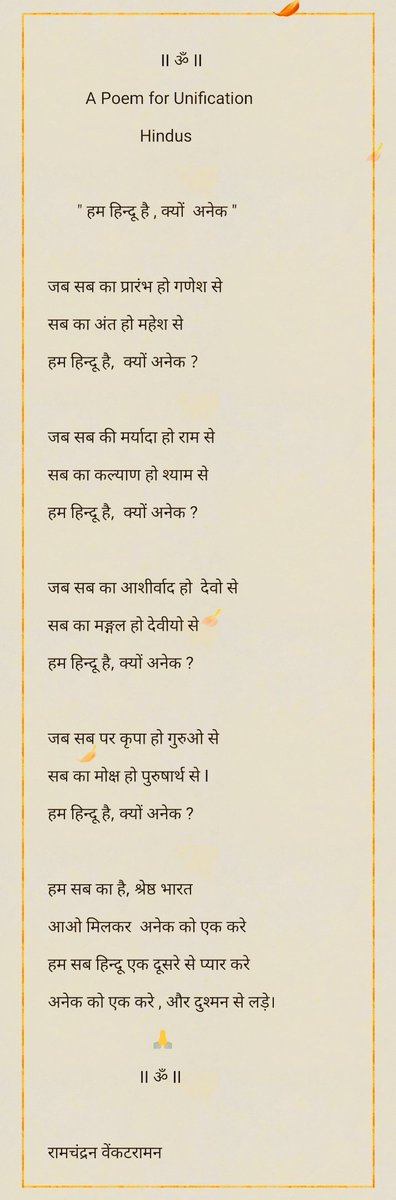 ॥ ॐ ॥
A Poem for Unification
Hindus
" हम हिन्दू है , क्यों अनेक "
जब सब का प्रारंभ हो गणेश से
सब का अंत हो महेश से
हम हिन्दू है, क्यों अनेक ?
जब सब की मर्यादा हो राम से
सब का कल्याण हो श्याम से
हम हिन्दू है, क्यों अनेक ?
जब सब का आशीर्वाद हो देवो से
सब का मङ्गल हो देवीयो से
हम हिन्दू है, क्यों अनेक ?
जब सब पर कृपा हो गुरुओ से
सब का मोक्ष हो पुरुषार्थ से I
हम हिन्दू है, क्यों अनेक ?
हम सब का है, श्रेष्ठ भारत
आओ मिलकर अनेक को एक करे
हम सब हिन्दू एक दूसरे से प्यार करे
अनेक को एक करे , और दुश्मन से लड़े।
🙏
॥ ॐ ॥
रामचंद्रन वेंकटरामन